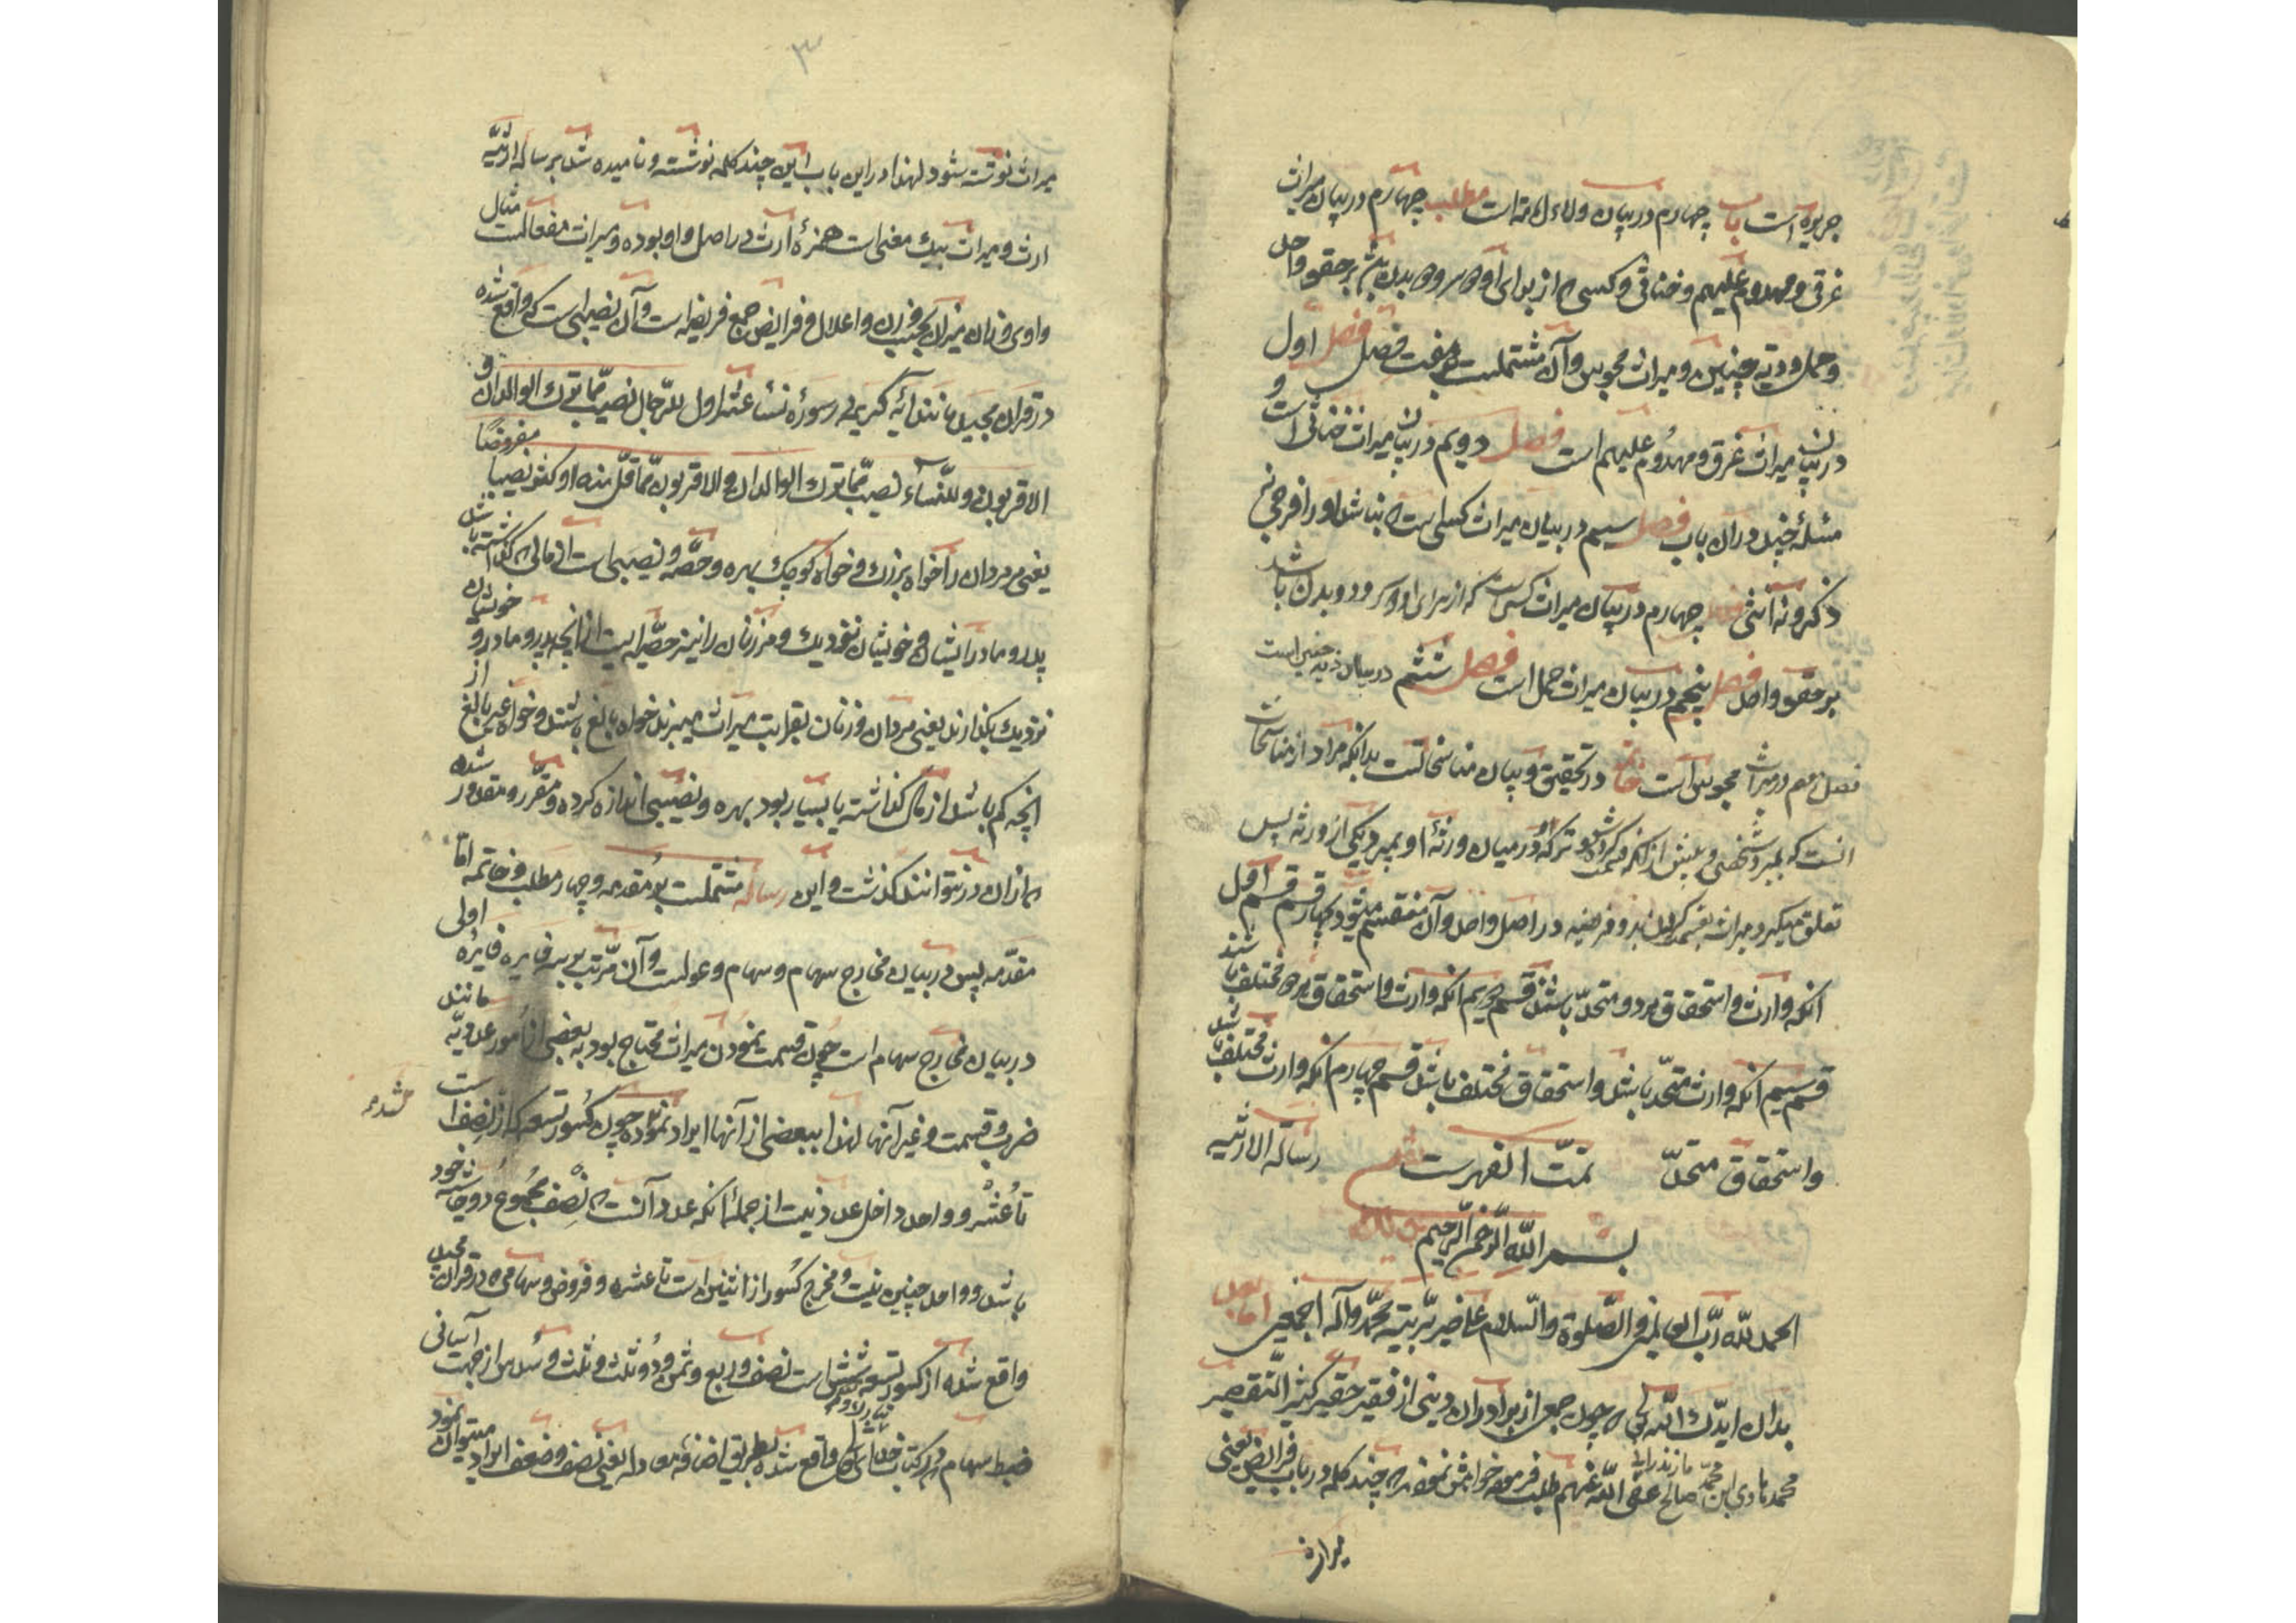 جریره است باب چهارم در بیان ولاء امامت است مطلب چهارم در بیان میراث
غرقی و مهدوم علیهم و خناثی و کسی که از برای او دو سر و دو بدن باشد بر حقو واحد
و حمل و دیة جنین و میراث مجوس و آن مشتملست بر هفت فصل فصل اول
در بیان میراث غرقی و مهدوم علیهم است فصل دویم در بیان میراث خناثی است و
مسئله چند در آن باب فصل سیم در بیان میراث کسی است که نباشد او را فرجی نه
ذکر و نه انثی فصل چهارم در بیان میراث کسی است که از برای او دو سر و دو بدن باشد
بر حقو واحد فصل پنجم در بیان میراث حمل است فصل ششم در بیان دیه جنین است
فصل هفتم در میراث مجوس است خاتمه در تحقیق و بیان مناسخاتست بدانکه مراد از مناسخات
آنست که بمیرد شخصی و پیش از آنکه قسمت کرده شود ترکه او در میان ورثه او بمیرد یکی از ورثه پس
تعلق میگیرد میراث بقسمت کردن دو فریضه در اصل واحد و آن منقسم میشود بچهار قسم قسم اول
آنکه وارث و استحقاق هر دو متحد باشند قسم دویم آنکه وارث و استحقاق هر دو مختلف باشند
قسم سیم آنکه وارث متحد باشد و استحقاق مختلف باشد قسم چهارم آنکه وارث مختلف باشد
و استحقاق متحد تمت الفهرست رسالة الارثیه
بسم الله الرحمن الرحیم
الحمد لله رب العالمین و الصلوة و السلام علی خیر بریته محمد و آله اجمعین اما بعد
بدان ایدک الله تعالی که چون جمعی از برادران دینی از فقیر حقیر کثیر التقصیر
محمد هادی ابن محمد صالح مازندرانی عفی الله عنهم طلب فرموده خواهش نمودند که چند کلمه در باب فرایض یعنی
میراث
۳
میراث نوشته شود لهذا در این باب این چند کلمه نوشته و نامیده شد برساله ارثیه
ارث و میراث بیک معنی است همزه ارث در اصل واو بوده و میراث مفعالست مثال
واوی و زان میزان بحسب وزن و اعلال و فرایض جمع فریضه است و آن نصیبی است که واقع شده
در قرآن مجید مانند آیه کریمه در سوره نساء عشر اول للرجال نصیب مما ترک الوالدان و
الاقربون و للنساء نصیب مما ترک الوالدان و الاقربون مما قل منه او کثر نصیبا مفروضا
یعنی مر مردان را خواه بزرگ و خواه کوچک بهره و حصه و نصیبی است از مالی که گذاشته باشد
پدر و مادر ایشان و خویشان نزدیک و مر زنان را نیز حصه ایست از آنچه پدر و مادر و خویشان
نزدیک بگذارند یعنی مردان و زنان بقرابت میراث میبرند خواه بالغ باشند و خواه غیر بالغ از
آنچه کم باشد از مال گذاشته یا بسیار بود بهره و نصیبی اندازه کرده و مقرر و مقدور شده
که از آن در نتوانند گذشت و این رساله مشتملست بر مقدمه و چهار مطلب و خاتمه اما
مقدمه پس در بیان مخارج سهام و سهام و عولست و آن مرتب بر سه فایره فایره اولی
در بیان مخارج سهام است چون قسمت نمودن میراث محتاج بود به بعضی از امور عددیه مانند
ضرب و قسمت و غیر آنها لهذا ببعضی از آنها ایراد نموده شد چون کسور تسعه که از نصف است
تا عشر و واحد داخل عدد نیست از جمله آنکه عدد آنست که نصف مجموع دو حاشیه خود
باشد و واحد چنین نیست و مخرج کسور از اثنین است تا عشره و فروض و سهامی که در قرآن مجید
واقع شده از کسور تسعه شش است نصف و ربع و ثمن و دو ثلث و ثلث و سدس از جهت آسانی
ضبط سهام که در کتاب خدای تعالی واقع شده بطریق اضافه معادله یعنی نصف و ضعف ایراد میتوان نمود